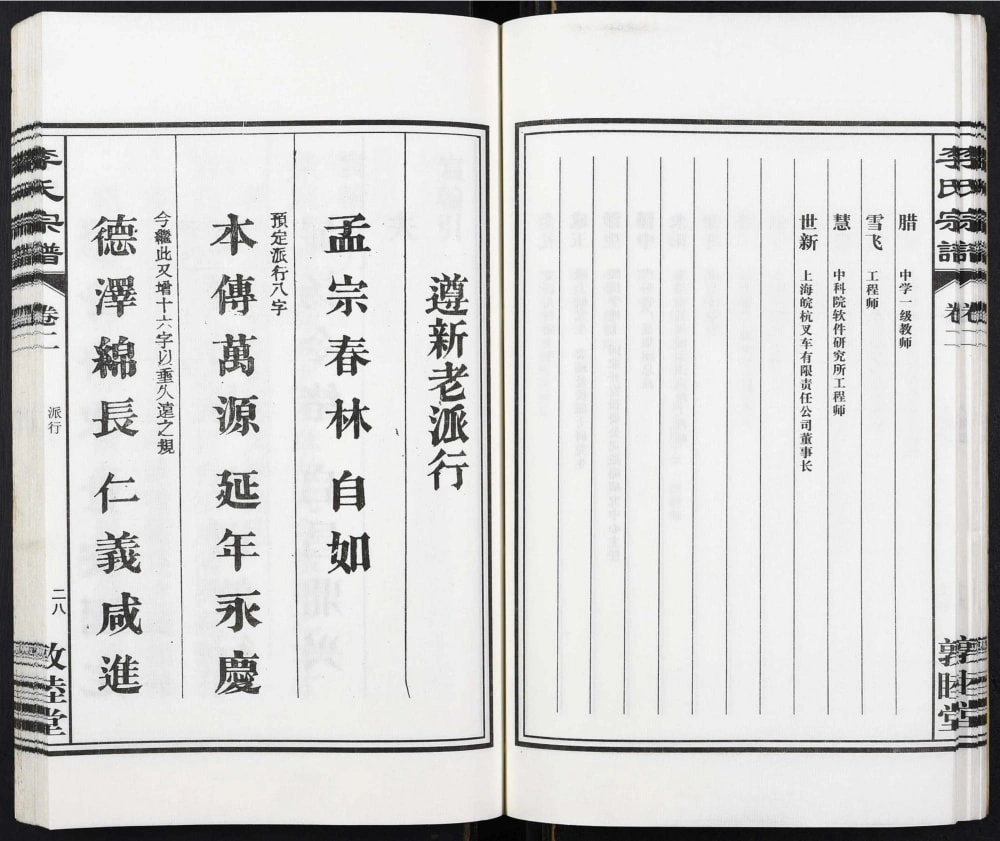 李氏宗譜
卷一
敦睦堂
腊 中学一级教师
雪飞 工程师
慧 中科院软件研究所工程师
世新 上海皖杭叉车有限责任公司董事长
遵新老派行
孟宗春林 自如
預定派行八字
本傳萬源 延年永慶
今繼此又增十六字以垂久遠之規
德澤綿長 仁義咸進
李氏宗譜
卷一
派行
二八
敦睦堂